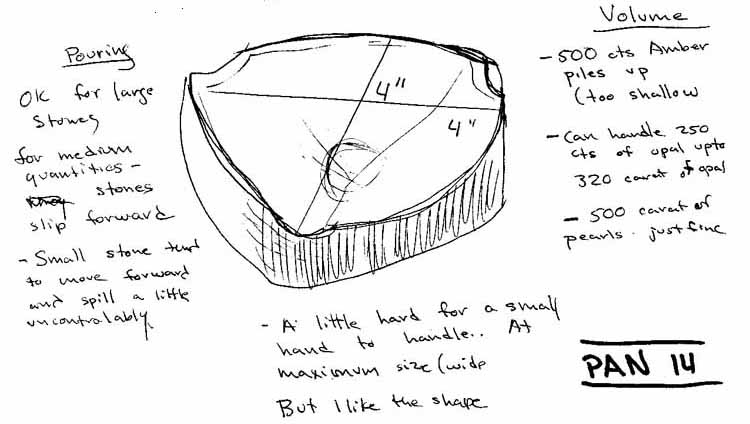 Pouring
OK for large
stones
for medium
quantities -
stones
slip forward
- Small stone tend
to move forward
and spill a little
uncontralably
4"
4"
Volume
- 500 cts Amber
piles up
(too shallow
- Can handle 250
cts of opal upto
320 carat of opal
- 500 carat of
pearls. just fine
- A little hard for a small
hand to handle.. At
maximum size (wide
But I like the shape
PAN 14